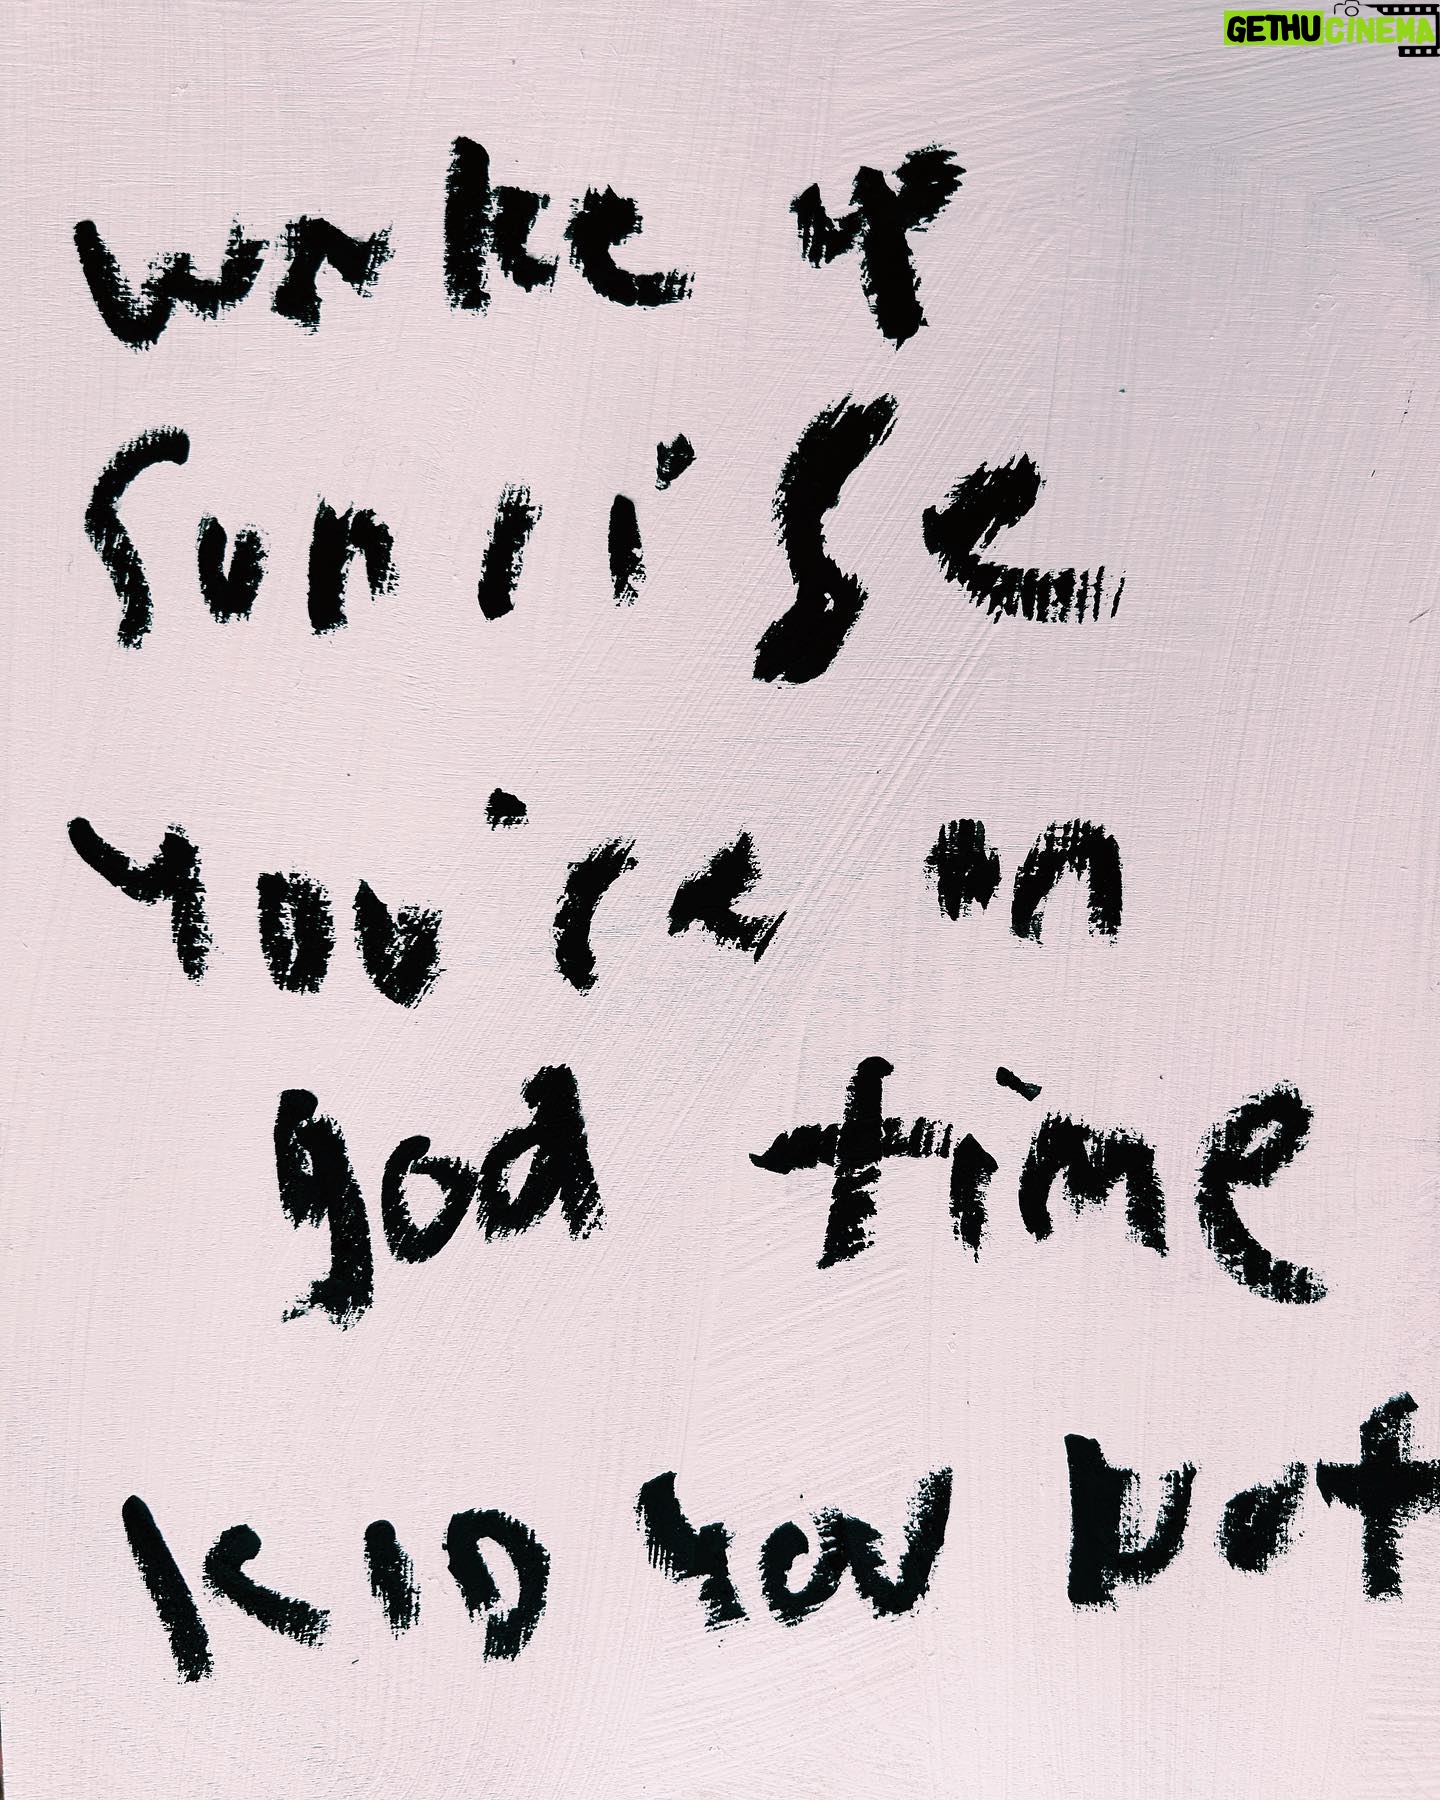 GETHUCINEMA
wake up
Sunrise
you're on
god time
KID you not